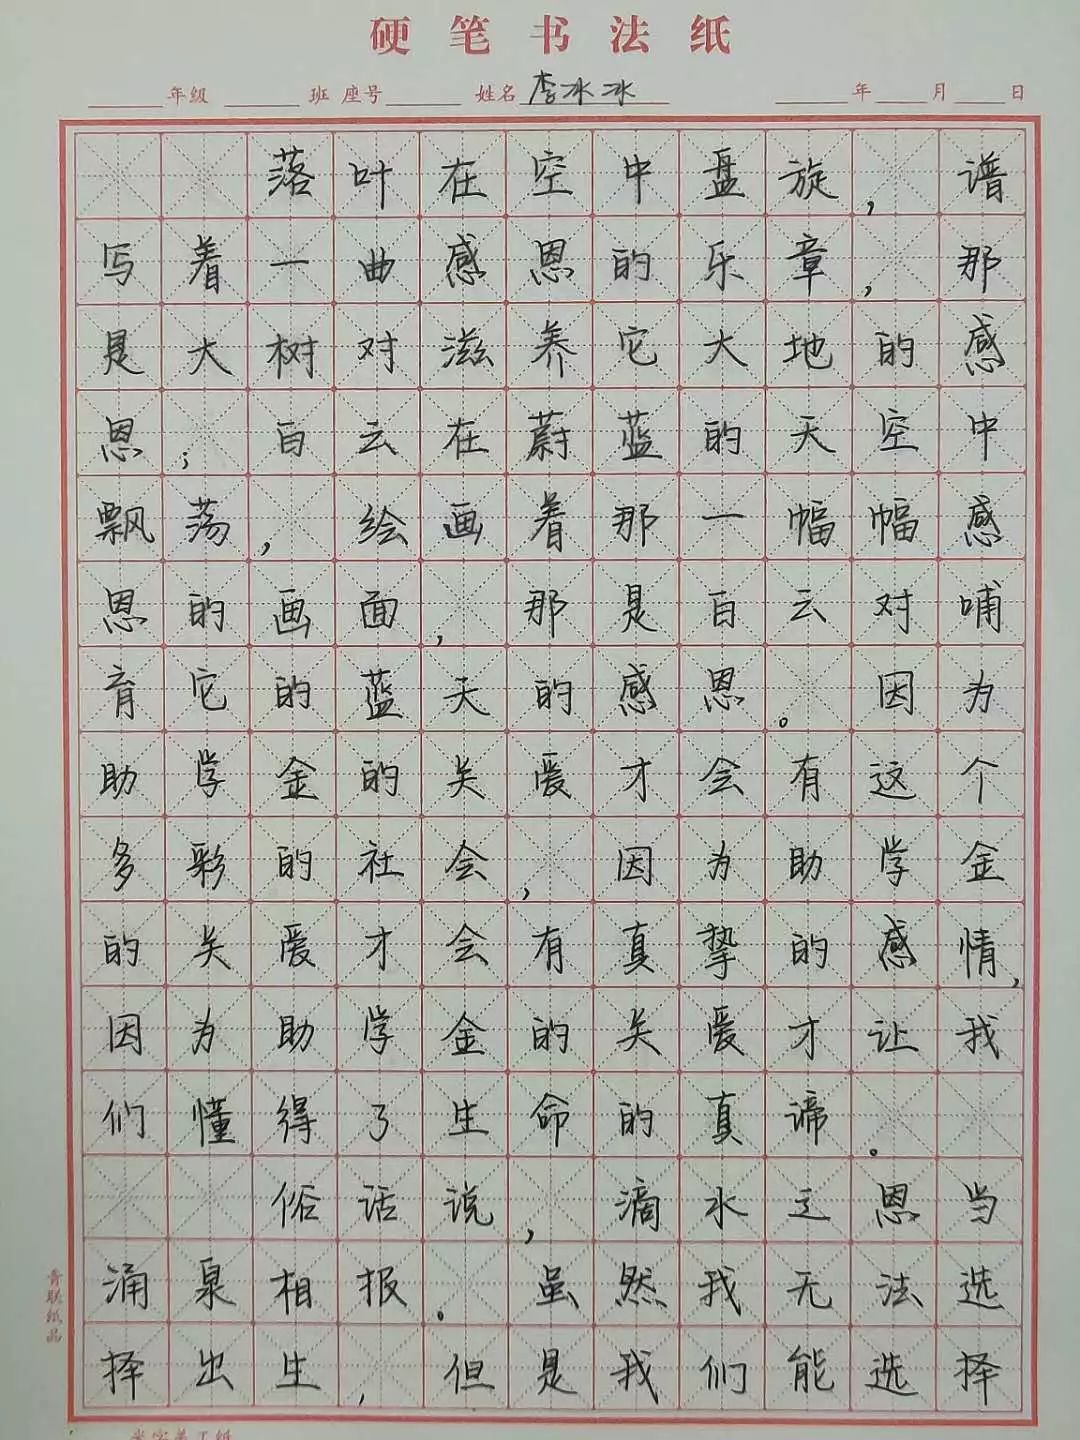 硬笔书法纸
年级 班 座号 姓名 李冰冰 年 月 日
落叶在空中盘旋，谱
写着一曲感恩的乐章，那
是大树对滋养它大地的感
恩；白云在蔚蓝的天空中
飘荡，绘画着那一幅幅感
恩的画面，那是白云对哺
育它的蓝天的感恩。因为
助学金的关爱才会有这个
多彩的社会，因为助学金
的关爱才会有真挚的感情，
因为助学金的关爱才让我
们懂得了生命的真谛。
俗话说，滴水之恩当
涌泉相报。虽然我无法选
择出生，但是我们能选择
青联纸品